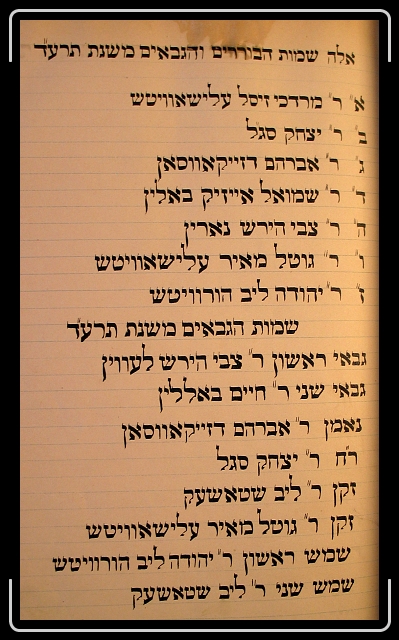 אלה שמות הבוררים והגבאים משנת תרע״ד
א״ ר״ מרדכי זיסל עלישאוויטש
ב״ ר״ יצחק סגל
ג״ ר״ אברהם דזייקאווסאן
ד״ ר״ שמואל אייזיק באלין
ה״ ר״ צבי הירש נארין
ו״ ר״ גוטל מאיר עלישאוויטש
ז״ ר״ יהודה ליב הורוויטש
שמות הגבאים משנת תרע״ד
גבאי ראשון ר״ צבי הירש לעווין
גבאי שני ר״ חיים באללין
נאמן ר״ אברהם דזייקאווסאן
ר״ח ר״ יצחק סגל
זקן ר״ ליב שטאשעק
זקן ר״ גוטל מאיר עלישאוויטש
שמש ראשון ר״ יהודה ליב הורוויטש
שמש שני ר״ ליב שטאשעק